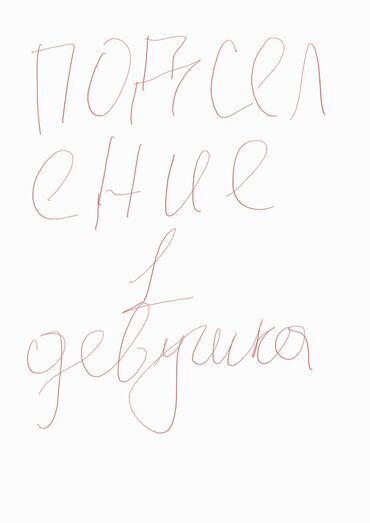 подсел
ение
1
девушка